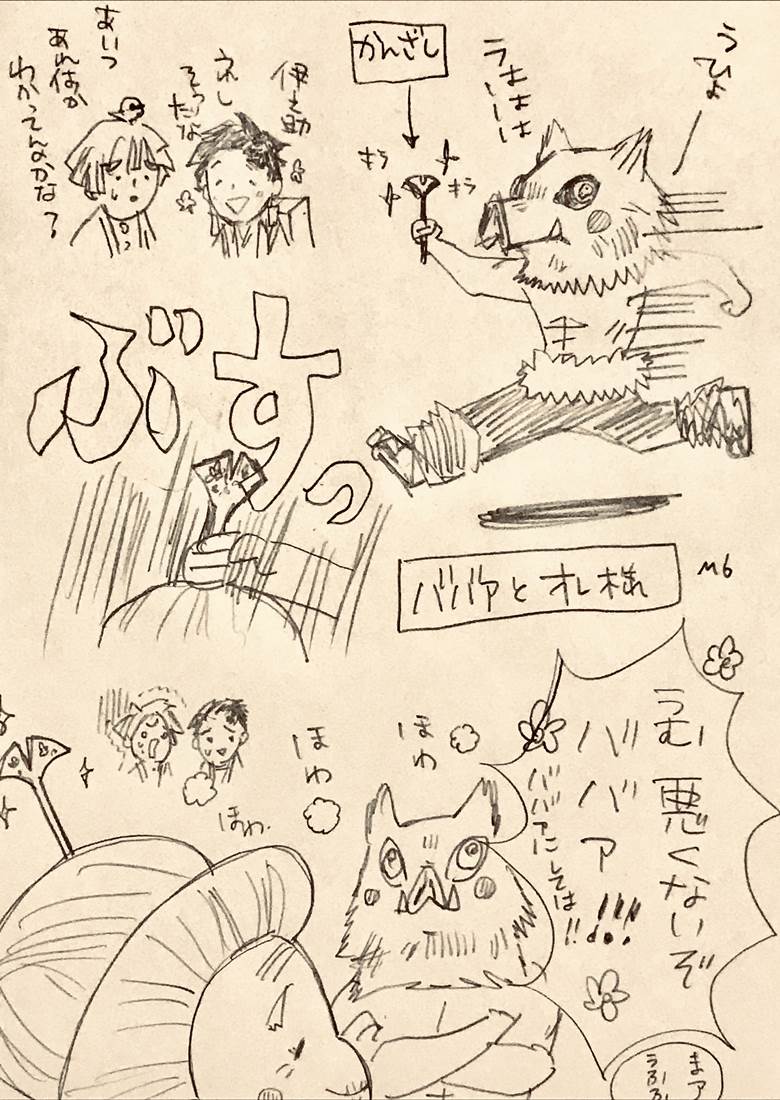 うひょ
うははは
ーーー
かんざし
キラ
キラ
伊之助
うれし
そう
だな
あいつ
あれ何か
わかってんのかな?
ぶすっ
ババアとオレ様
うむ 悪くないぞ
ババア!!!
ババアにしては!!
ほわ
ほわ
ほわ
まア
うふふ